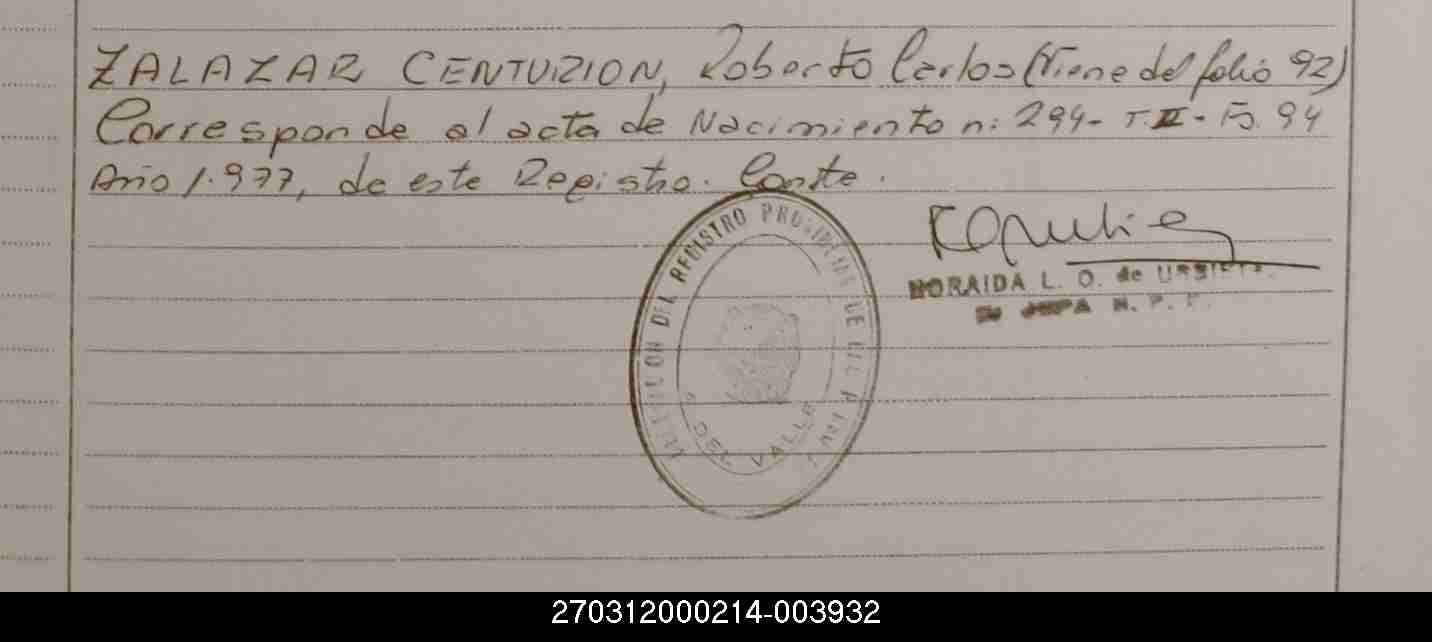 ZALAZAR CENTURION, Roberto Carlos (Viene del folio 92)
Corresponde al acta de Nacimiento n: 294- T. II - Fº. 94
Año 1.977, de este Registro. Conste.
DEL REGISTRO PROVINCIAL DE
DEL VALLE
NORAIDA L. O. de
270312000214-003932